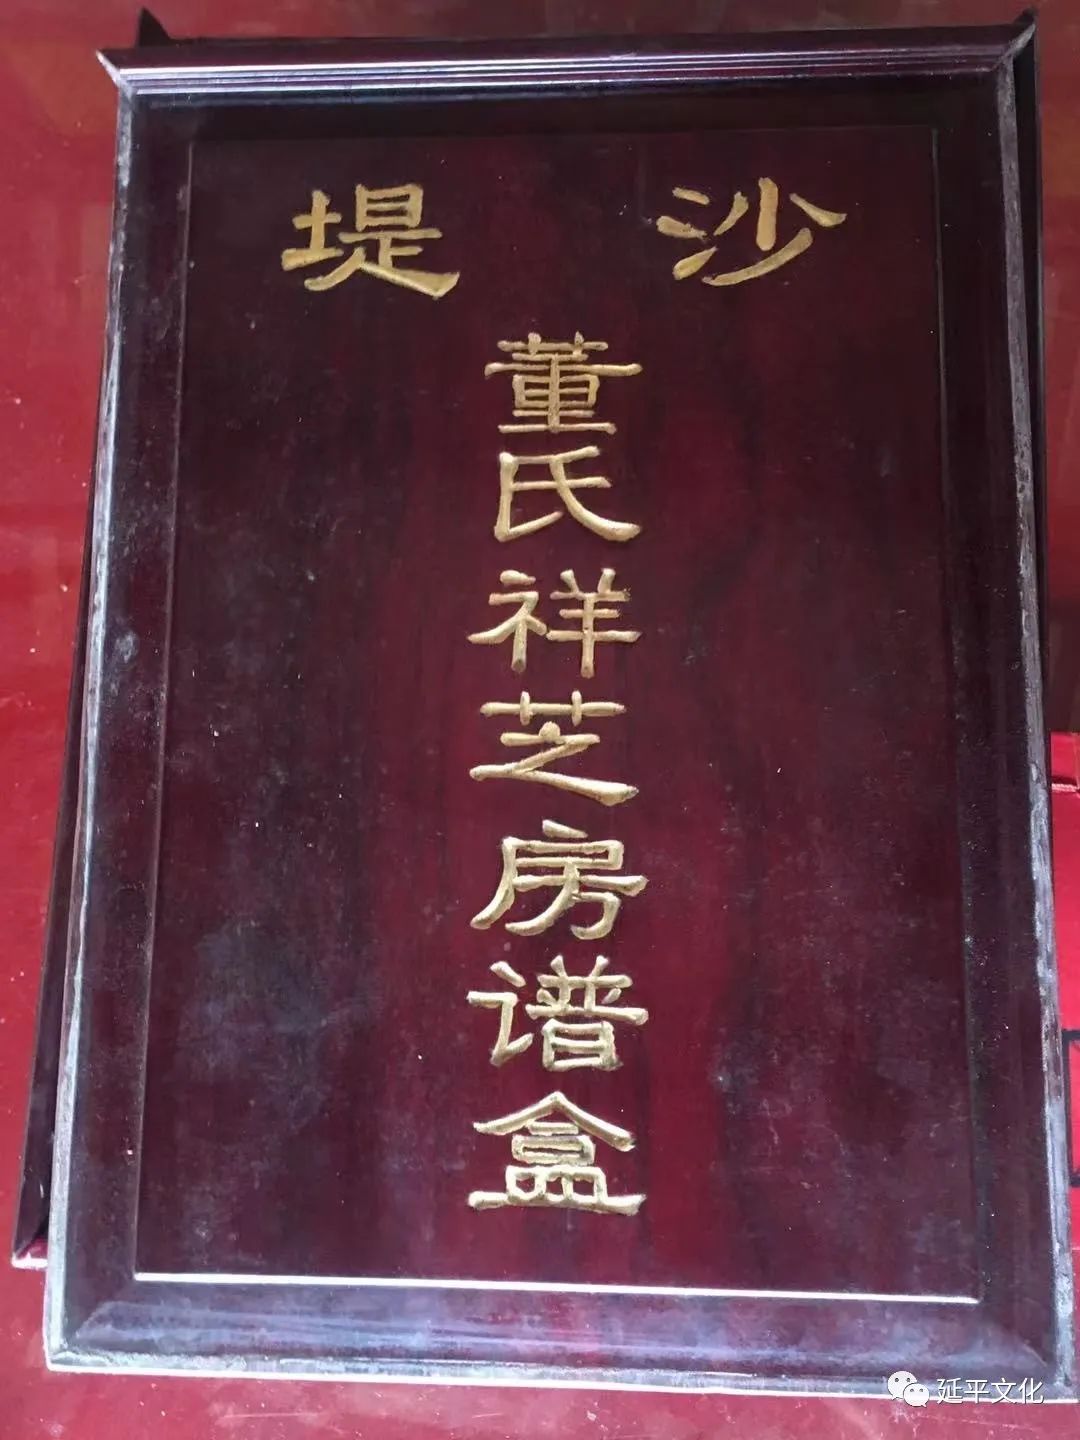 沙堤
董氏祥芝房谱盒
延平文化